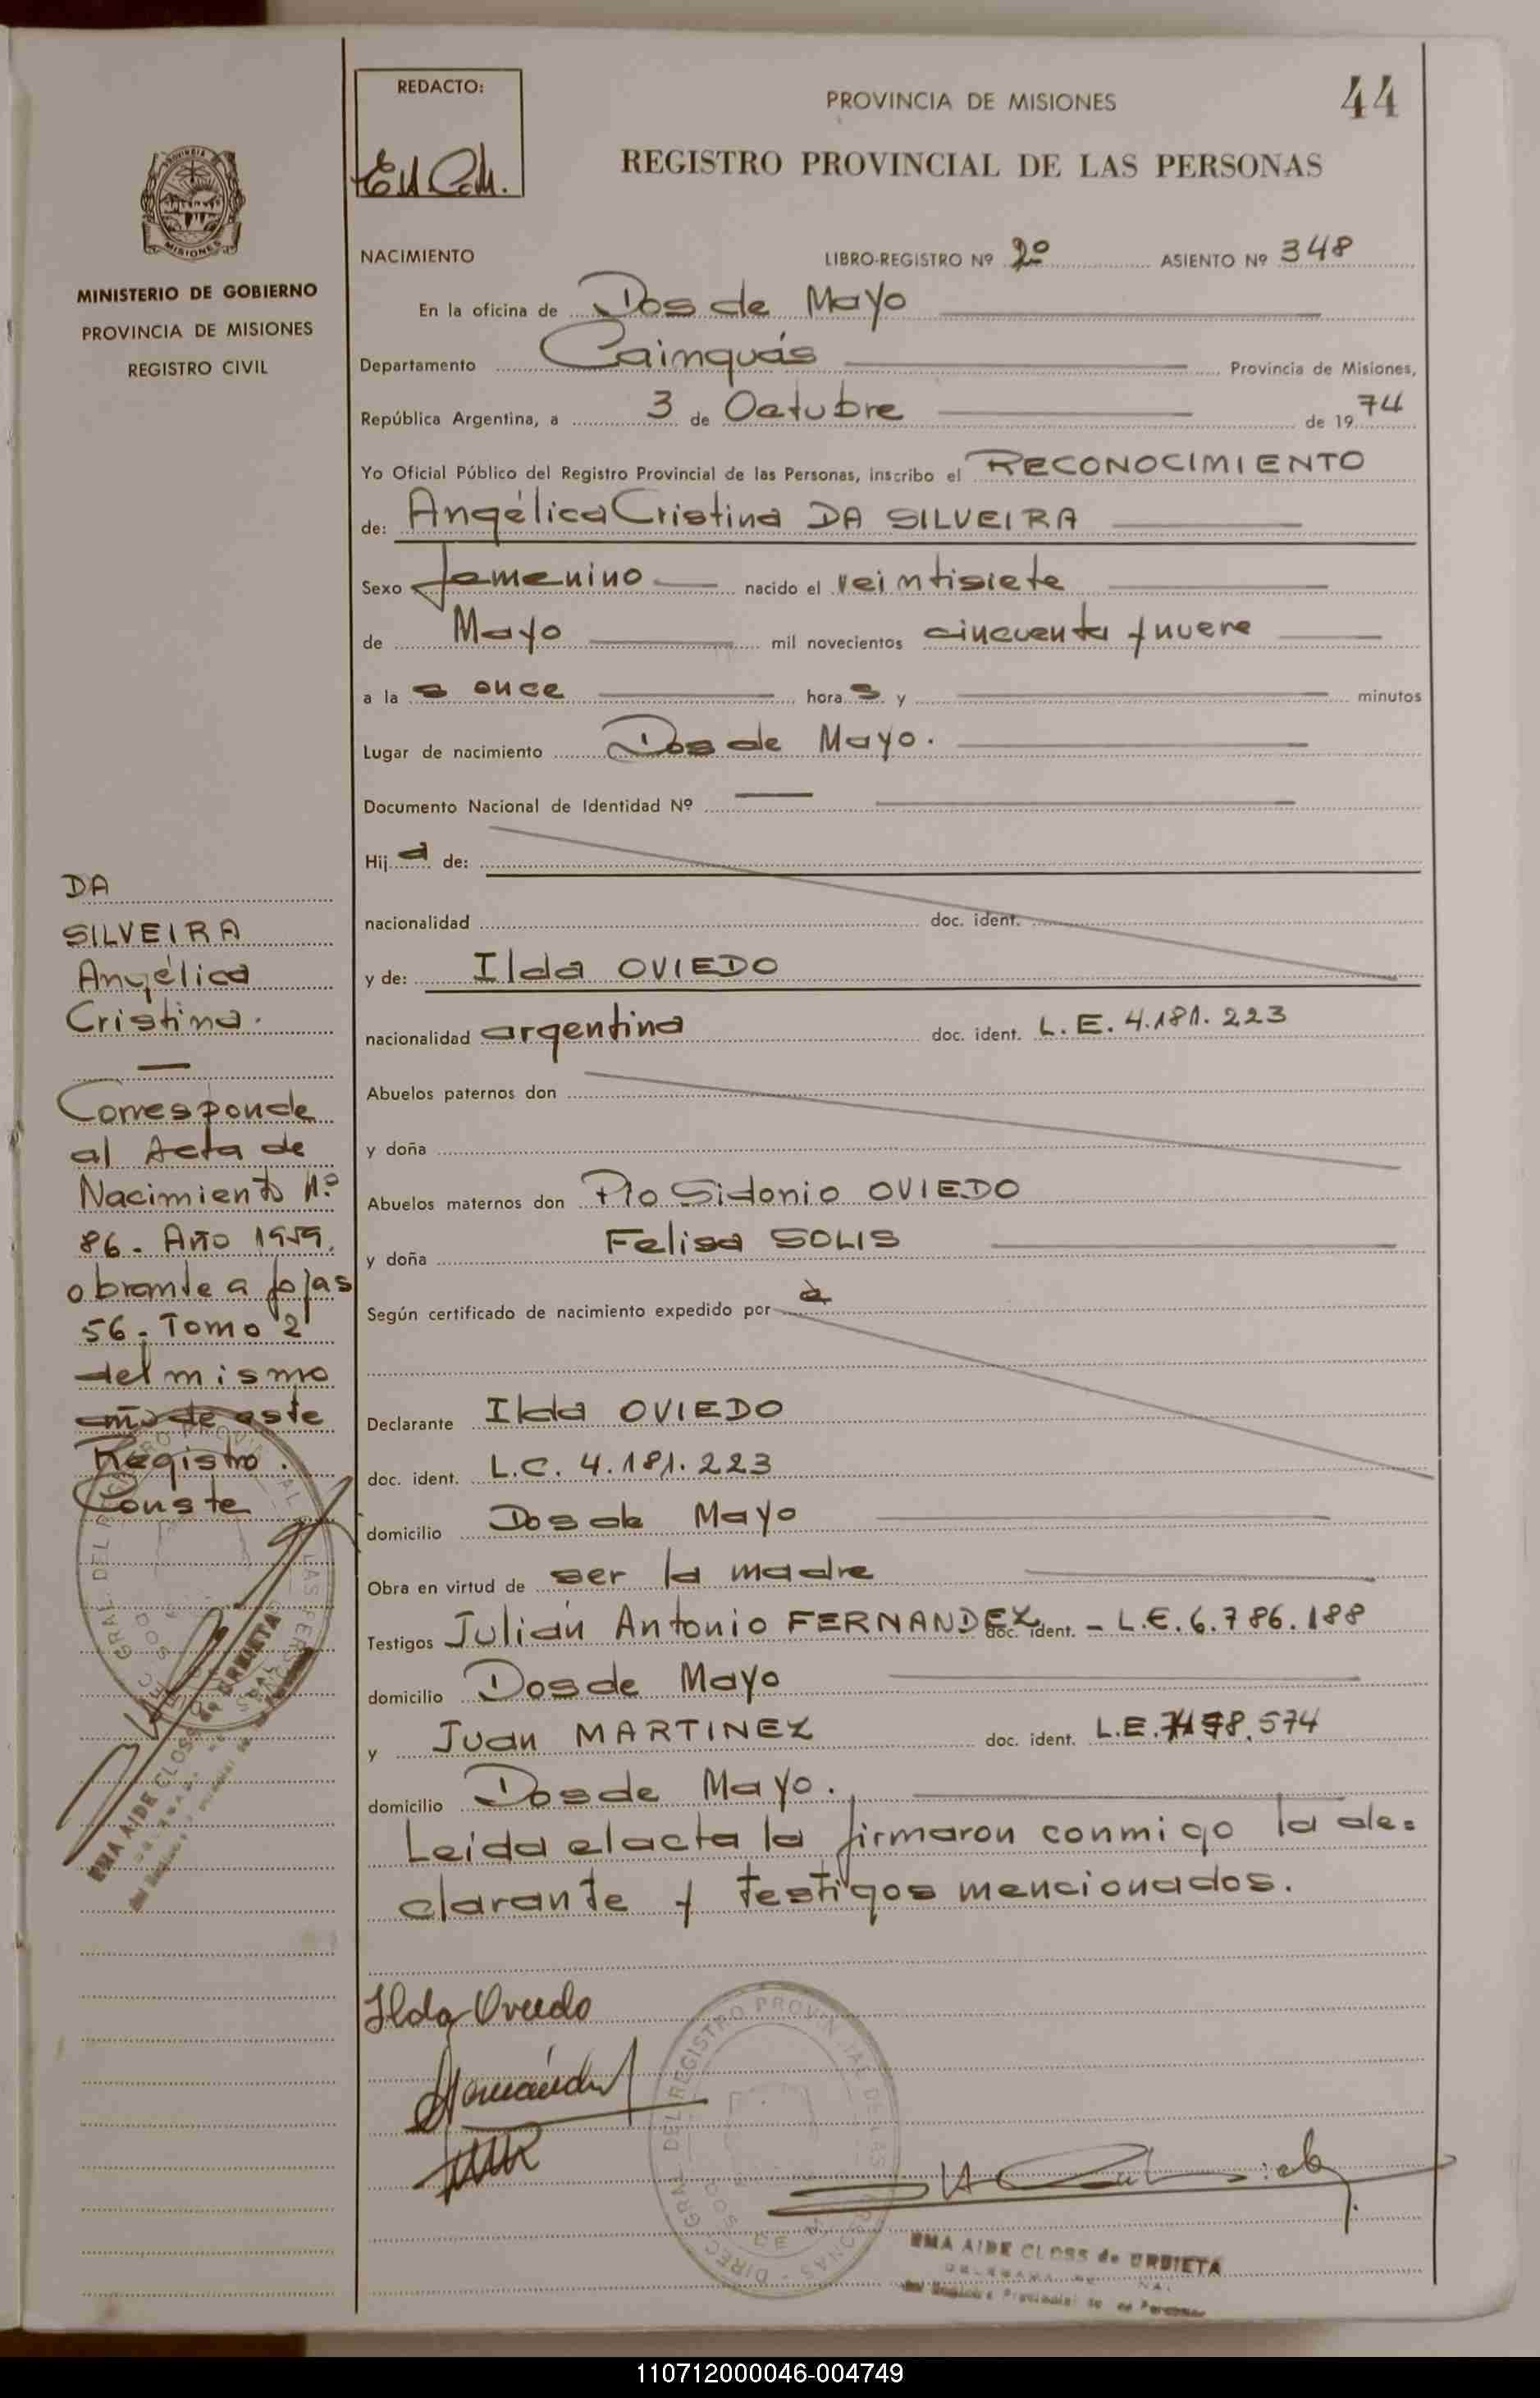 REDACTO:
PROVINCIA DE MISIONES
44
REGISTRO PROVINCIAL DE LAS PERSONAS
PROVINCIA DE
MISIONES
MINISTERIO DE GOBIERNO
PROVINCIA DE MISIONES
REGISTRO CIVIL
NACIMIENTO LIBRO-REGISTRO Nº 2º ASIENTO Nº 348
En la oficina de Dos de Mayo
Departamento Cainquás Provincia de Misiones,
República Argentina, a 3 de Octubre de 1974
Yo Oficial Público del Registro Provincial de las Personas, inscribo el RECONOCIMIENTO
de: Angélica Cristina DA SILVEIRA
Sexo femenino nacido el veintisiete
de Mayo mil novecientos cincuenta y nueve
a la s once hora s y minutos
Lugar de nacimiento Dos de Mayo.
Documento Nacional de Identidad Nº
Hij a de:
nacionalidad doc. ident.
y de: Ilda OVIEDO
nacionalidad argentina doc. ident. L.E. 4.181.223
Abuelos paternos don
y doña
Abuelos maternos don Pío Sidonio OVIEDO
y doña Felisa SOLIS
Según certificado de nacimiento expedido por
Declarante Ilda OVIEDO
doc. ident. L.C. 4.181.223
domicilio Dos de Mayo
Obra en virtud de ser la madre
Testigos Julián Antonio FERNANDEZ doc. ident. - L.E. 6.786.188
domicilio Dos de Mayo
y Juan MARTINEZ doc. ident. L.E. 574
domicilio Dos de Mayo.
Leida el acta la firmaron conmigo la de=
clarante y testigos mencionados.
Ilda Oviedo
DA
SILVEIRA
Angélica
Cristina.
Corresponde
al Acta de
Nacimiento Nº
86. Año 1959.
obrante a fojas
56. Tomo 2
del mismo
año de este
Registro.
Conste
EMA AIDE CLOSS de URBIETA
EMA AIDE CLOSS de URBIETA
110712000046-004749